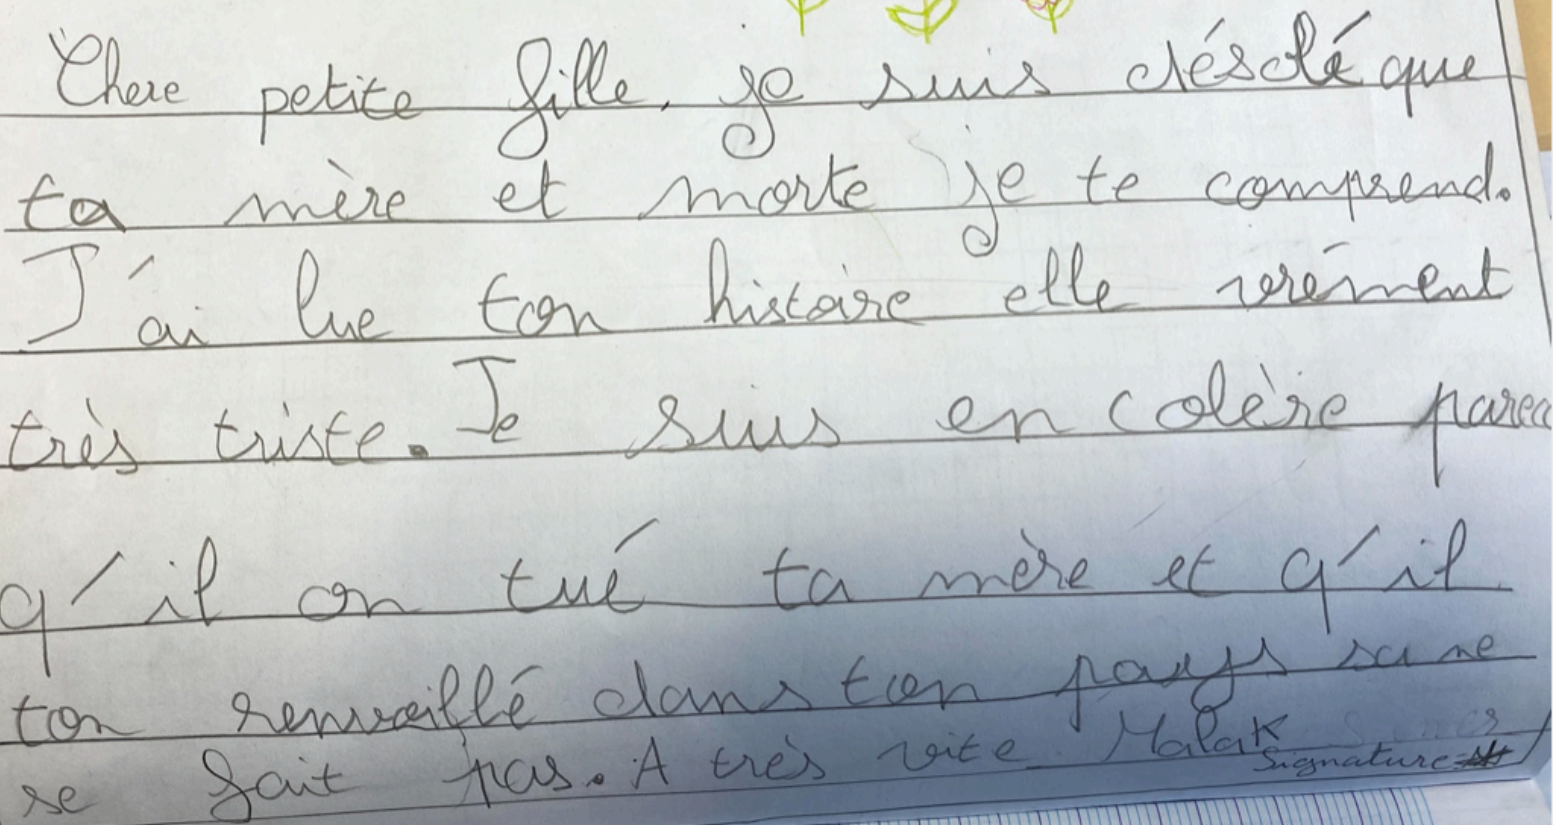 Chere petite fille, je suis désolé que
ta mère et morte je te comprend.
J'ai lue ton histoire elle vrément
très triste. Je suis en colère parce
q'il on tué ta mère et q'il
ton renvoillé dans ton pays sa ne
se fait pas. A très vite Malak
Signature